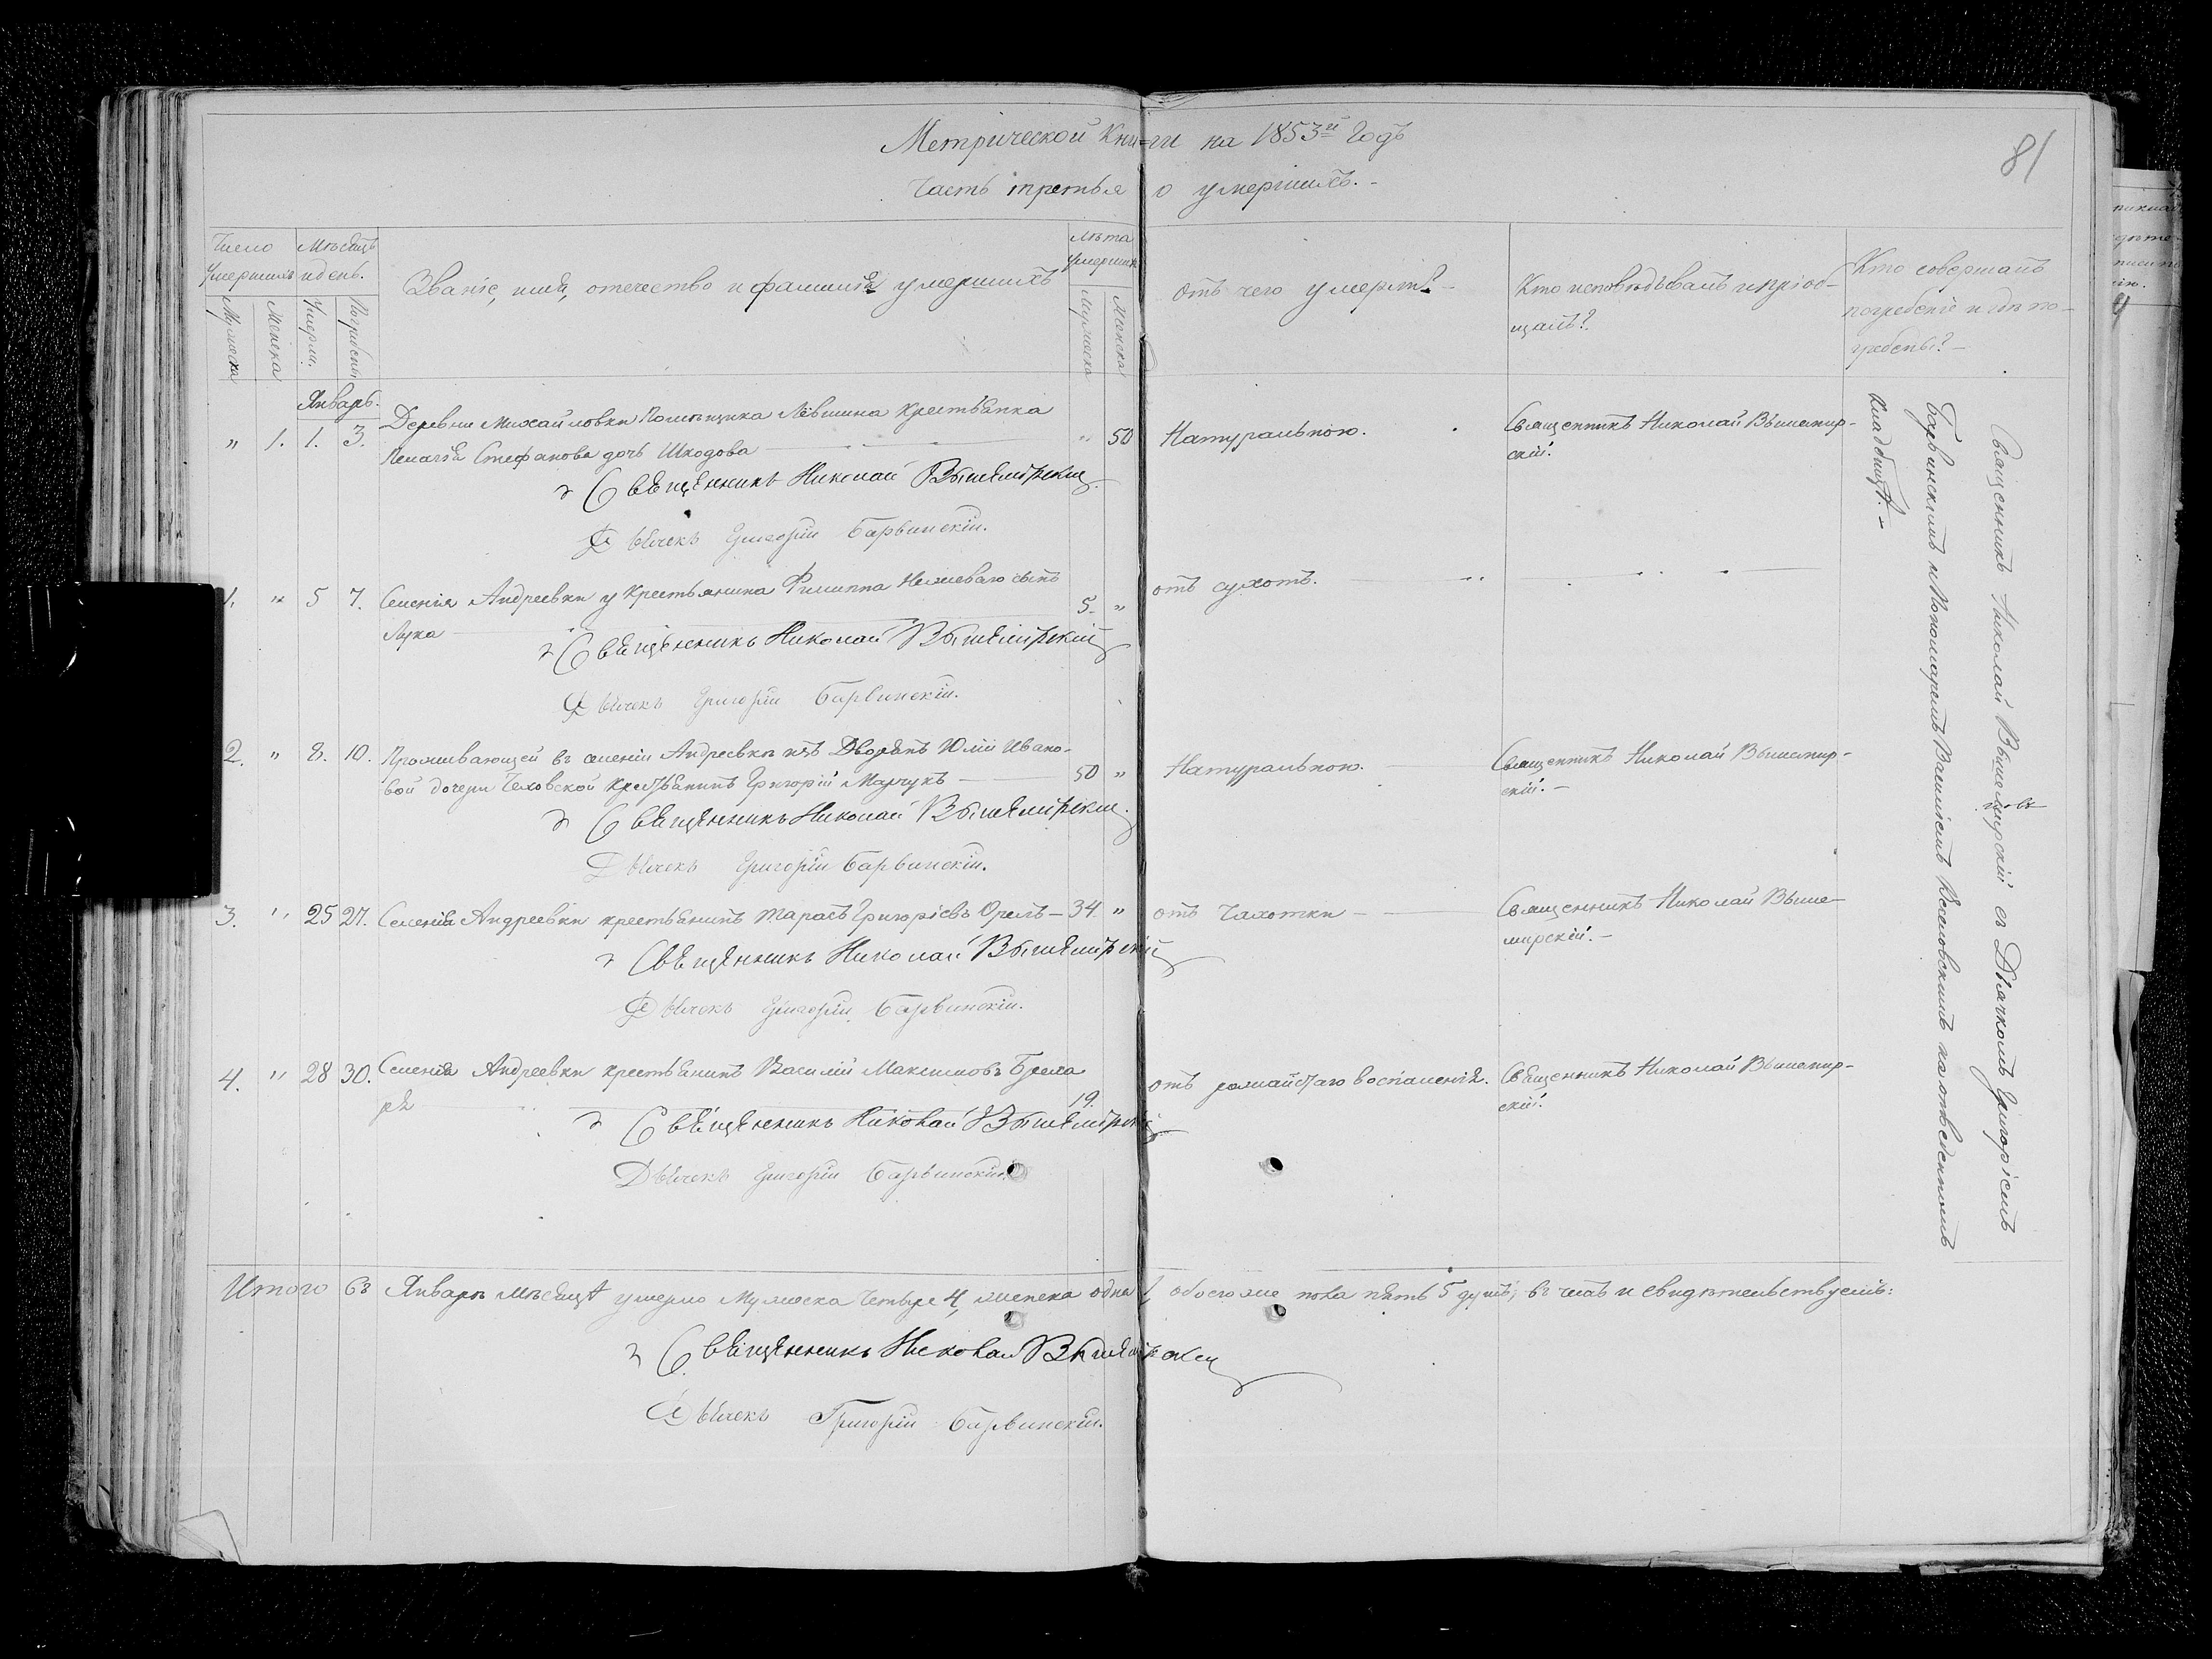 Метрической Книги на 1853й Годъ
81
Часть третья о умершихъ.
Число умершихъ
Мѣсяцъ и день.
Званіе, имя, отечество и фамилія умершихъ
Лѣта умершихъ
Отъ чего умерли?
Кто исповѣдывалъ и пріоб-
щалъ?
Кто совершалъ
погребеніе и гдѣ по-
гребены?
Мужеска
Женска
Умерли.
Погребены
Мужеска
Женска
Январь.
Деревни Михайловки Помѣщика Лёвшина крестьянка
" 1. 1. 3. Пелагія Стефанова дочь Шкодова " 50 Натуральною. Священникъ Николай Вышемир-
скій.
Священникъ Николай Вышемірскій
Дьячекъ Григорій Барвинскій.
1. " 5 7. Селенія Андреевки у крестьянина Филиппа сынъ
Лука 5. " отъ сухотъ.
Священникъ Николай Вышемірскій
Дьячекъ Григорій Барвинскій.
2. " 8. 10. Проживающей въ селеніи Андреевки изъ Дворянъ Юліи Ивано-
вой дочери Чеховской крестьянинъ Григорій Марчукъ 50 " Натуральною. Священникъ Николай Вышемир-
скій.
Священникъ Николай Вышемірскій
Дьячекъ Григорій Барвинскій.
3. " 25 27. Селенія Андреевки крестьянинъ Тарасъ Григоріевъ Орелъ 34. " отъ чахотки Священникъ Николай Выше-
мирскій.
Священникъ Николай Вышемірскій
Дьячекъ Григорій Барвинскій.
4. " 28 30. Селенія Андреевки крестьянинъ Василій Максимовъ
19. отъ воспаленія. Священникъ Николай Вышемир-
скій.
Священникъ Николай Вышемірскій
Дьячекъ Григорій Барвинскій.
Священникъ Николай Вышемирскій съ Дьячкомъ Григоріемъ
Барвинскимъ и Пономаремъ Василіемъ Веселовскимъ на отведенномъ
кладбищѣ.
Итого въ Январѣ мѣсяцѣ умерло Мужеска четыре 4, женска одна 1, обоего же пола пять 5 душъ; въ чемъ и свидѣтельствуемъ:
Священникъ Николай Вышемірскій
Дьячекъ Григорій Барвинскій.